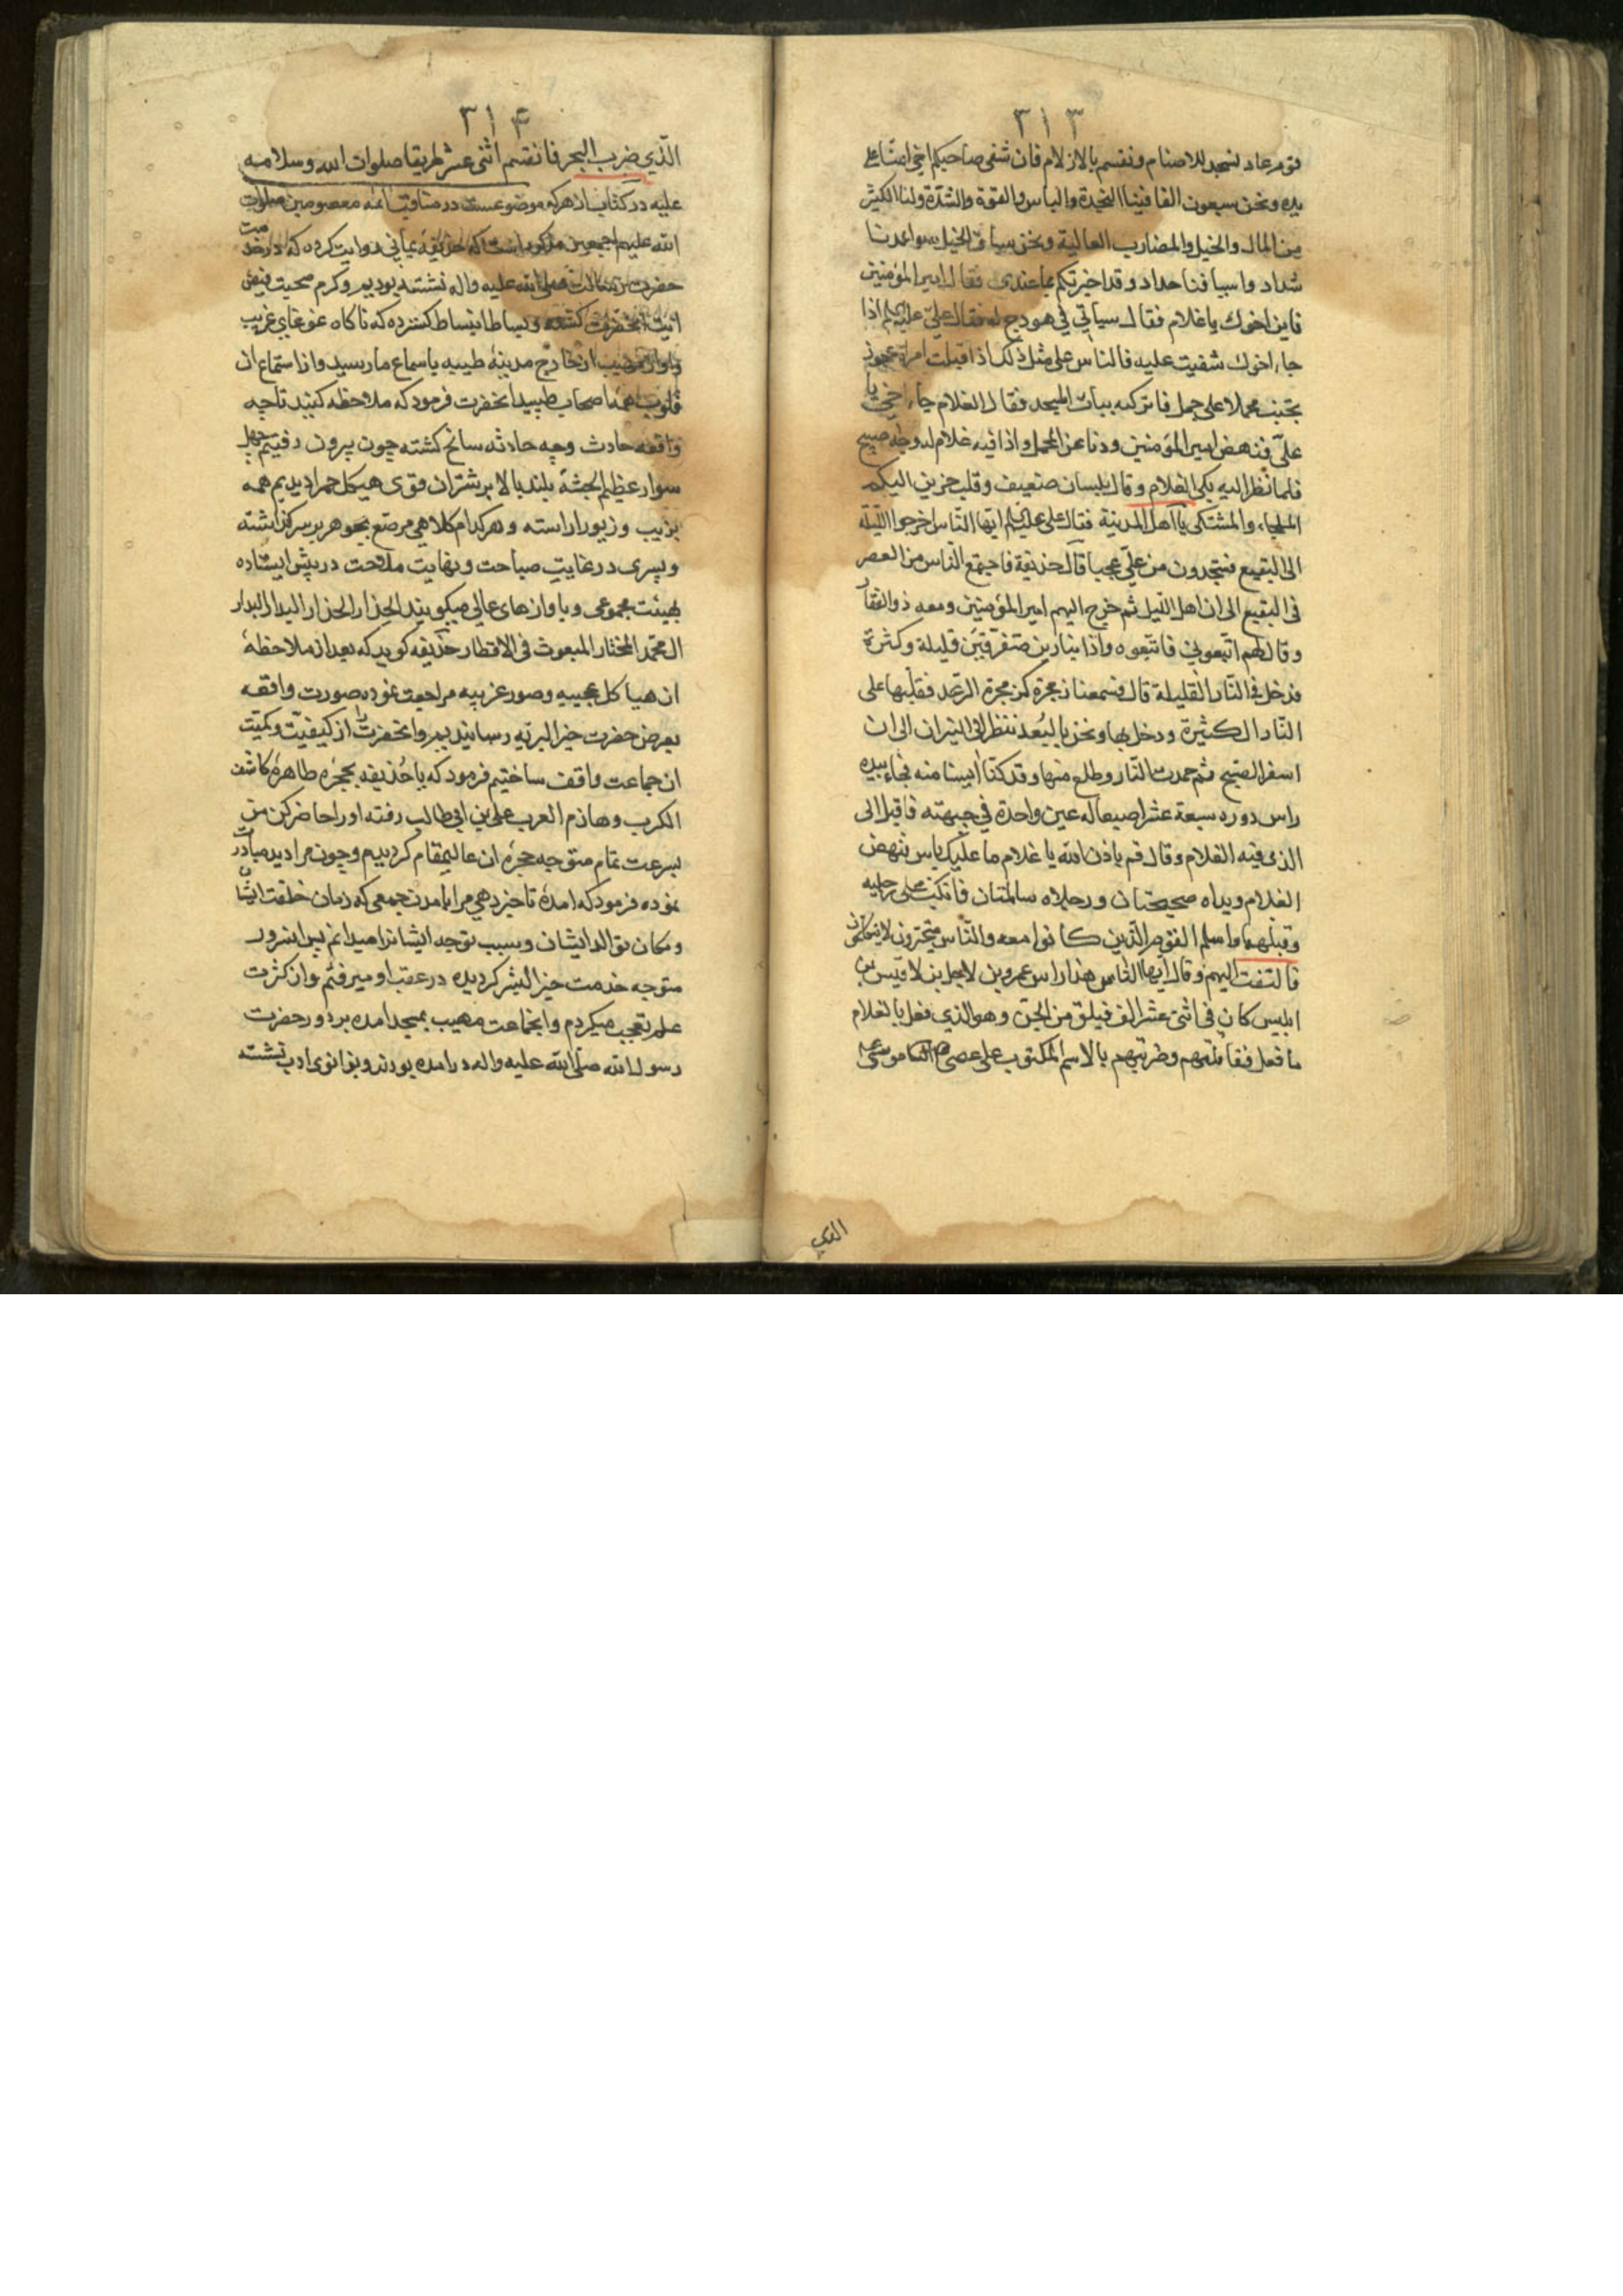 ٣١٣
قوم عاد نسجد للاصنام ونقسم بالازلام فان شفى صاحبكم اخي امنّا على
يده ونحن سبعون الفا فينا النجدة والباس والقوة والشدّة ولنا الكثير
من المال والخيل والمضارب العالية ونحن سباق الخيل سواعدنا
شداد واسيافنا حداد وقد اخبرتكم بما عندى فقال امير المؤمنين
فاين اخوك يا غلام فقال سياتي في هودج له فقال علي عليه السلام اذا
جاء اخوك شفيت عليه فالناس على مثل ذلك اذ اقبلت امراة عجوز
بجنب محملا على جمل فاتركبه بباب المسجد فقال الغلام جاء اخي يا
علىّ فنهض امير المؤمنين ودنا من المحمل واذا فيه غلام له وجه صبيح
فلما نظر اليه بكى الغلام وقال بلسان ضعيف وقلب حزين اليكم
الملجاء والمشتكى يا اهل المدينة فقال علي عليه السلام ايها الناس اخرجوا الليلة
الى البقيع فستجدون من علىّ عجبا قال حذيفة فاجتمع الناس من العصر
فى البقيع الى ان اهل الليل ثم خرج اليهم امير المؤمنين ومعه ذو الفقار
وقال لهم اتبعوني فاتبعوه واذا بنارين متفرقين قليلة وكثرة
فدخل في النار القليلة قال فسمعنا زمجرة كزمجرة الرعد فقلبها على
النار الكثيرة ودخل بها ونحن بالبُعد ننظر الى النيران الى ان
اسفر الصبح ثم خمدت النار وطلع منها وقد كنّا ايسنا منه فجاء بيده
راس دوره سبعة عشر اصبعا له عين واحدة في جبهته فاقبل الى
الذى فيه الغلام وقال قم باذن الله يا غلام ما عليك باس فنهض
الغلام ويداه صحيحتان ورجلاه سالمتان فانكبّ على رجليه
وقبلهما واسلم القوم الّذين كانوا معه والناس متحيرون لا يتكلمون
فالتفت اليهم وقال ايها الناس هذا راس عمرو بن لاخيل بن لاقيس بن
ابليس كان فى اثنى عشر الف فيلق من الجن وهو الذي فعل بالغلام
ما فعل فقاتلتهم وضربتهم بالاسم المكتوب على عصى موسى
الذي
٣١۴
الّذي ضرب البحر فانقسم اثنى عشر طريقا صلوات الله وسلامه
عليه در كتاب ازهر كه موضوعست در مناقب ائمه معصومين صلوات
الله عليهم اجمعين مذكور است كه حذيفهٔ يمانى روايت كرده كه در خدمت
حضرت رسالت صلى الله عليه واله نشسته بوديم وكرم صحبت فيض
انحضرت كشته وبساط انبساط كسترده كه ناكاه غوغاى غريب
واواز مهيب از خارج مدينهٔ طيبه باسماع ما رسيد واز استماع ان
قلوب همهٔ اصحاب طپيد انحضرت فرمود كه ملاحظه كنيد تا چه
واقعه حادث وچه حادثه سانح كشته چون بيرون رفتيم چهل
سوار عظيم الجثهٔ بلند بالا بر شتران قوى هيكل حمرا ديديم همه
بزيب وزيور اراسته وهر كدام كلاهى مرصّع بجوهر بر سر كذاشته
وپسرى در غايت صباحت ونهايت ملاحت در پيش ايستاده
بهيئت مجموعى وباوازهاى عالى ميكويند الحذار الحذار البدار البدار
ال محمّد المختار المبعوث فى الاقطار حذيفه كويد كه بعد از ملاحظهٔ
ان هياكل عجيبه وصور غريبه مراجعت نموده صورت واقعه
بعرض حضرت خير البريّه رسانيديم وانحضرت را از كيفيّت وكميّت
ان جماعت واقف ساختيم فرمود كه يا حُذيفه بحجرهٔ طاهرهٔ كاشف
الكرب وهازم العرب على بن ابى طالب رفته او را حاضر كن من
بسرعت تمام متوجه حجرهٔ ان عاليمقام كرديدم وچون مرا ديد مبادرت
نموده فرمود كه امدهٔ تا خبر دهى مرا بامدن جمعى كه زمان خلقت ايشان
ومكان توالد ايشان وسبب توجه ايشانرا ميدانم پس انسرور
متوجه خدمت خير البشر كرديده در عقب او ميرفتم واز كثرت
علم تعجب ميكردم وانجماعت مهيب بمسجد امده بر دور حضرت
رسول الله صلى الله عليه واله درامده بودند وبزانوى ادب نشسته